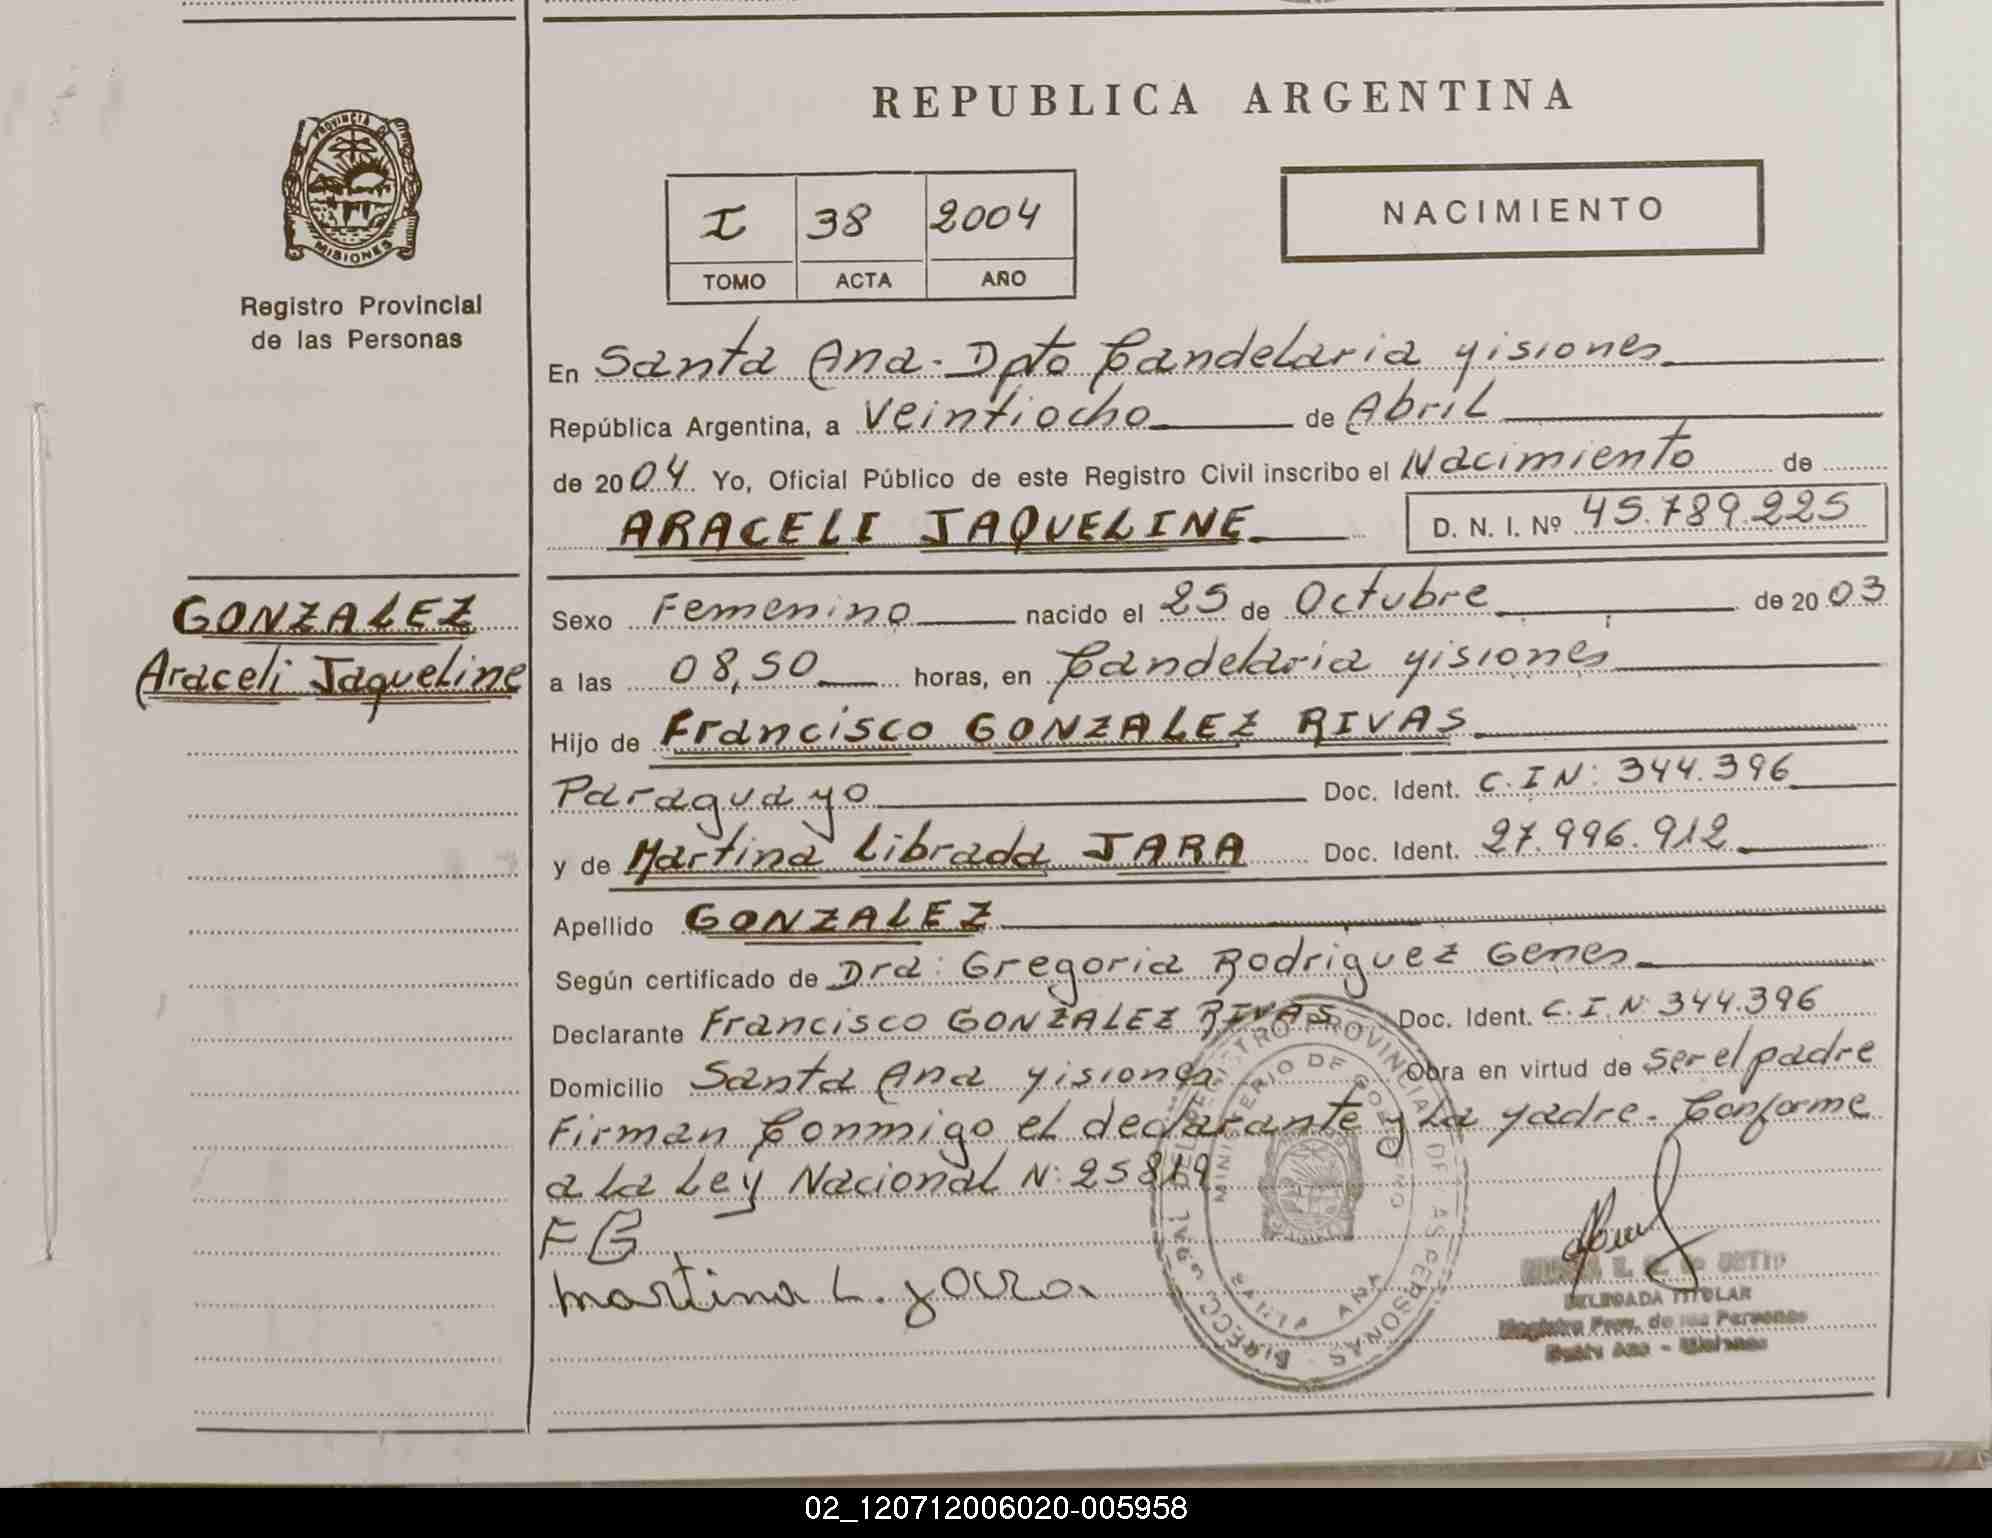 REPUBLICA ARGENTINA
PROVINCIA DE
MISIONES
Registro Provincial
de las Personas
I 38 2004
TOMO ACTA AÑO
NACIMIENTO
En Santa Ana - Dpto Candelaria Misiones
República Argentina, a Veintiocho de Abril
de 2004 Yo, Oficial Público de este Registro Civil inscribo el Nacimiento de
ARACELI JAQUELINE D. N. I. Nº 45.789.225
GONZALEZ
Araceli Jaqueline
Sexo Femenino nacido el 25 de Octubre de 2003
a las 08,50 horas, en Candelaria Misiones
Hijo de Francisco GONZALEZ RIVAS
Paraguayo Doc. Ident. C.I N: 344.396
y de Martina Librada JARA Doc. Ident. 27.996.912
Apellido GONZALEZ
Según certificado de Dra: Gregoria Rodriguez Genes
Declarante Francisco GONZALEZ RIVAS Doc. Ident. C.I.N: 344.396
Domicilio Santa Ana Misiones Obra en virtud de ser el padre
Firman Conmigo el declarante y La Madre. Conforme
a La Ley Nacional N: 25819
F G
Martina L. Jara
REGISTRO PROVINCIAL DE LAS PERSONAS
MINISTERIO DE GOBIERNO
SANTA ANA
DELEGADA TITULAR
Registro Prov. de las Personas
Santa Ana - Misiones
02_120712006020-005958